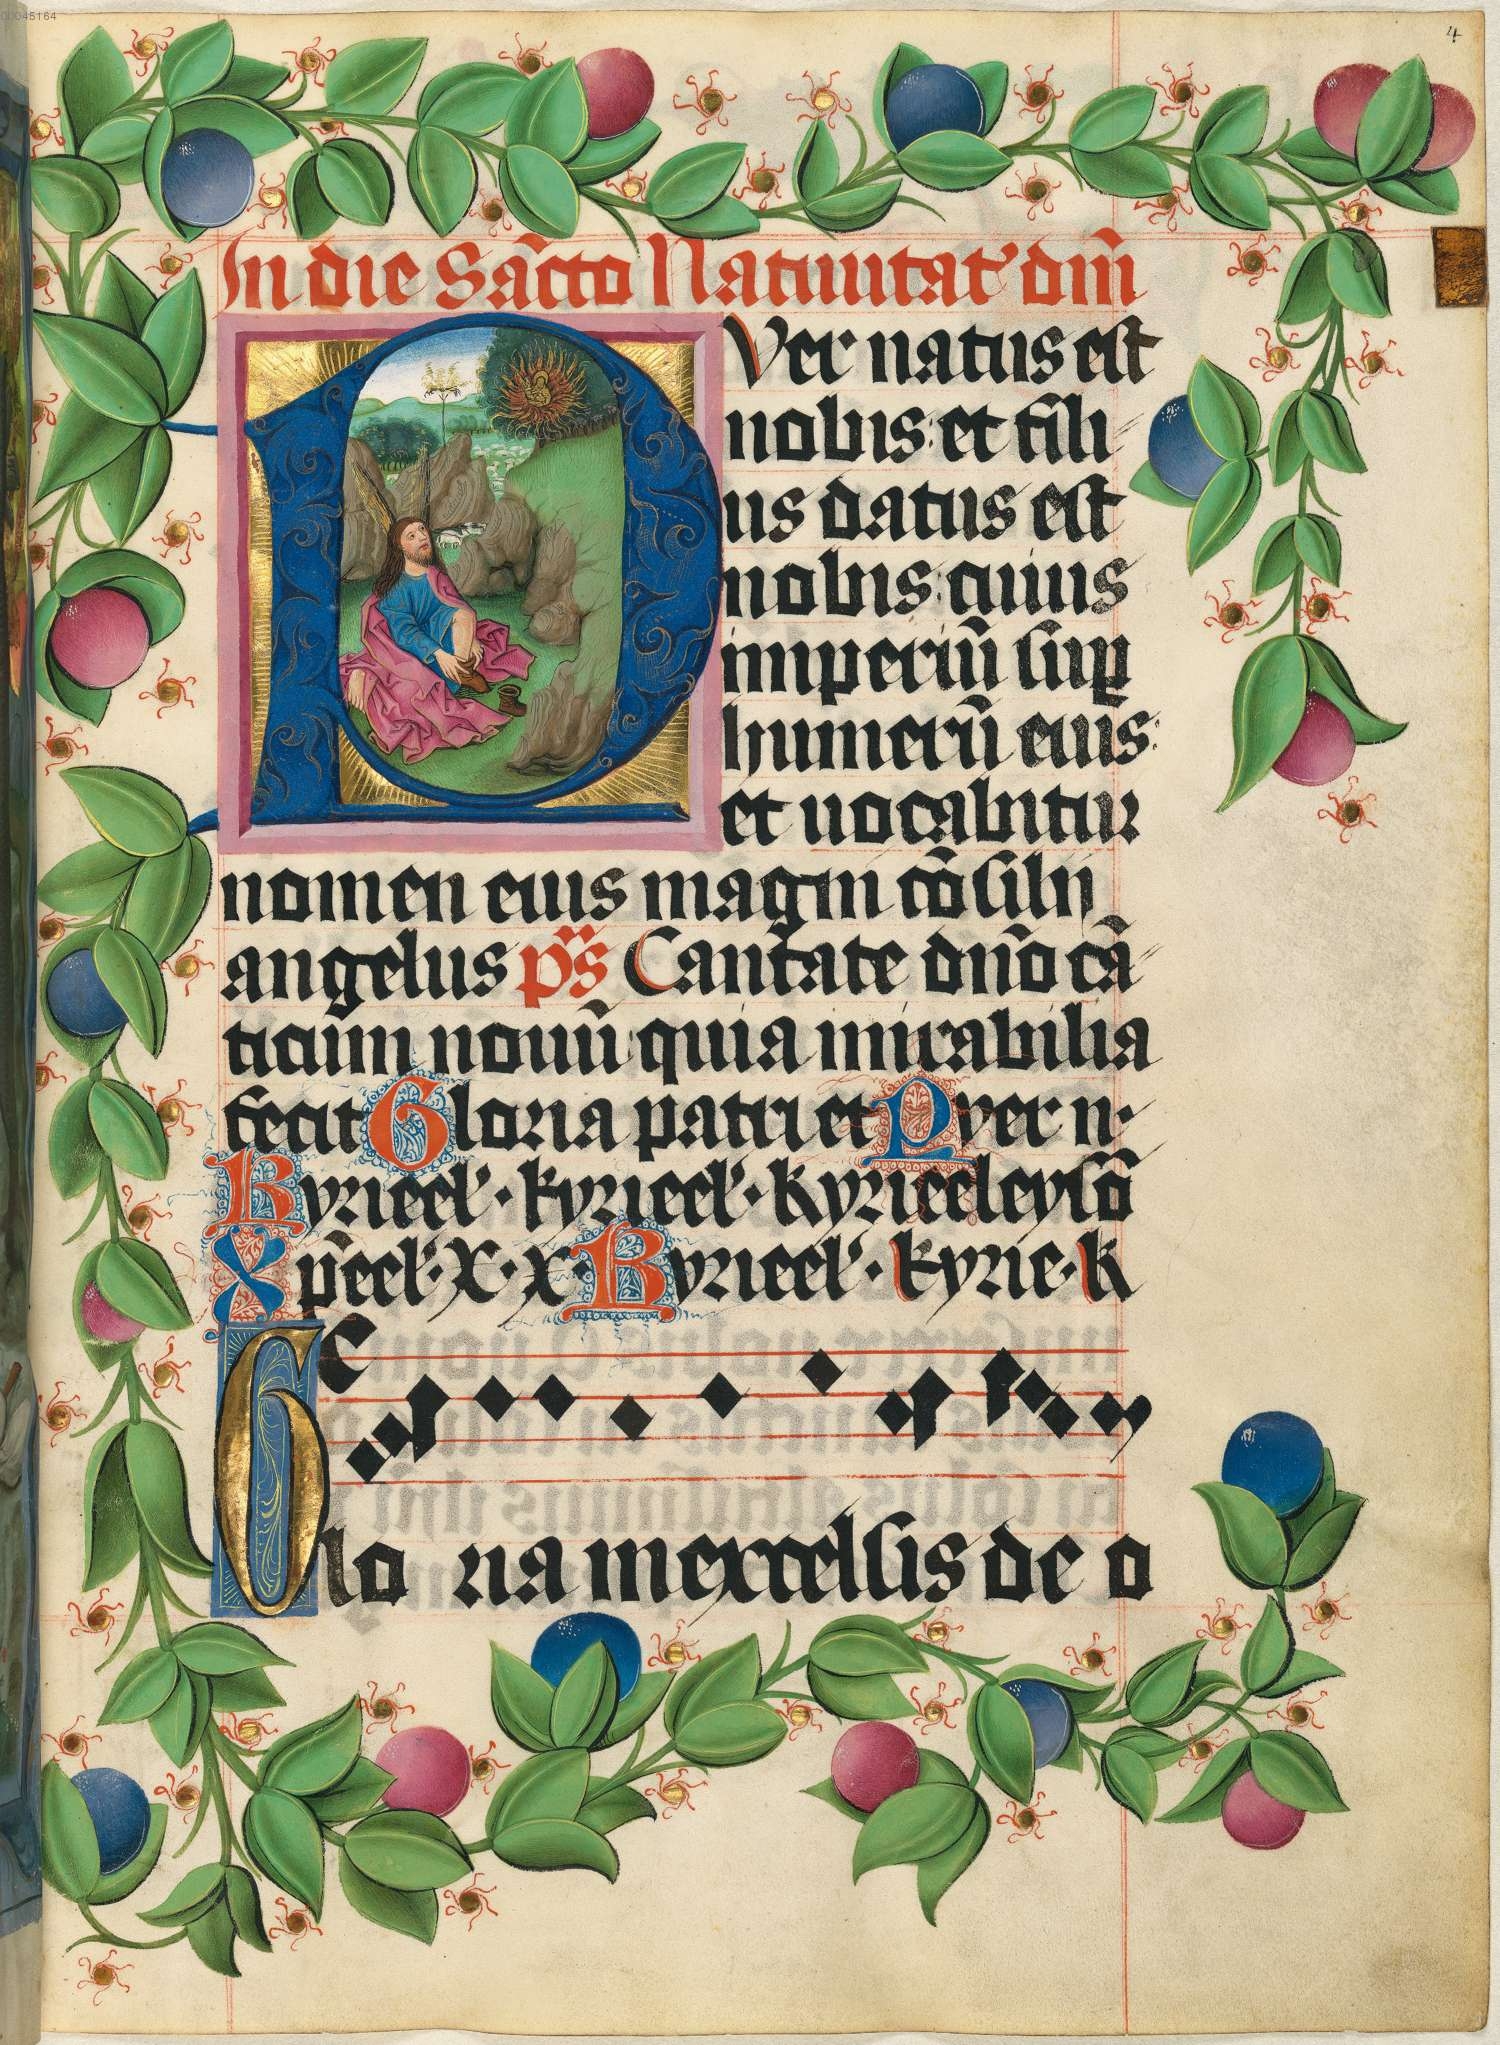 00045164
4
In die Sācto Natiuitat' dm̄
Puer natus est
nobis: et fili
us datus est
nobis: cuius
imperiū suꝑ
humerū eius:
et uocabitur
nomen eius magni cōsilij
angelus ps̄ Cantate dn̄o cā
ticum nouū: quia mirabilia
fecit Gloria patri et Pver n·
Kyrieel'· kyrieel'· Kyrieeleysō
Xp̄eel'· X· x· Kyrieel'· kyrie· k
Glo ria in excelsis de o